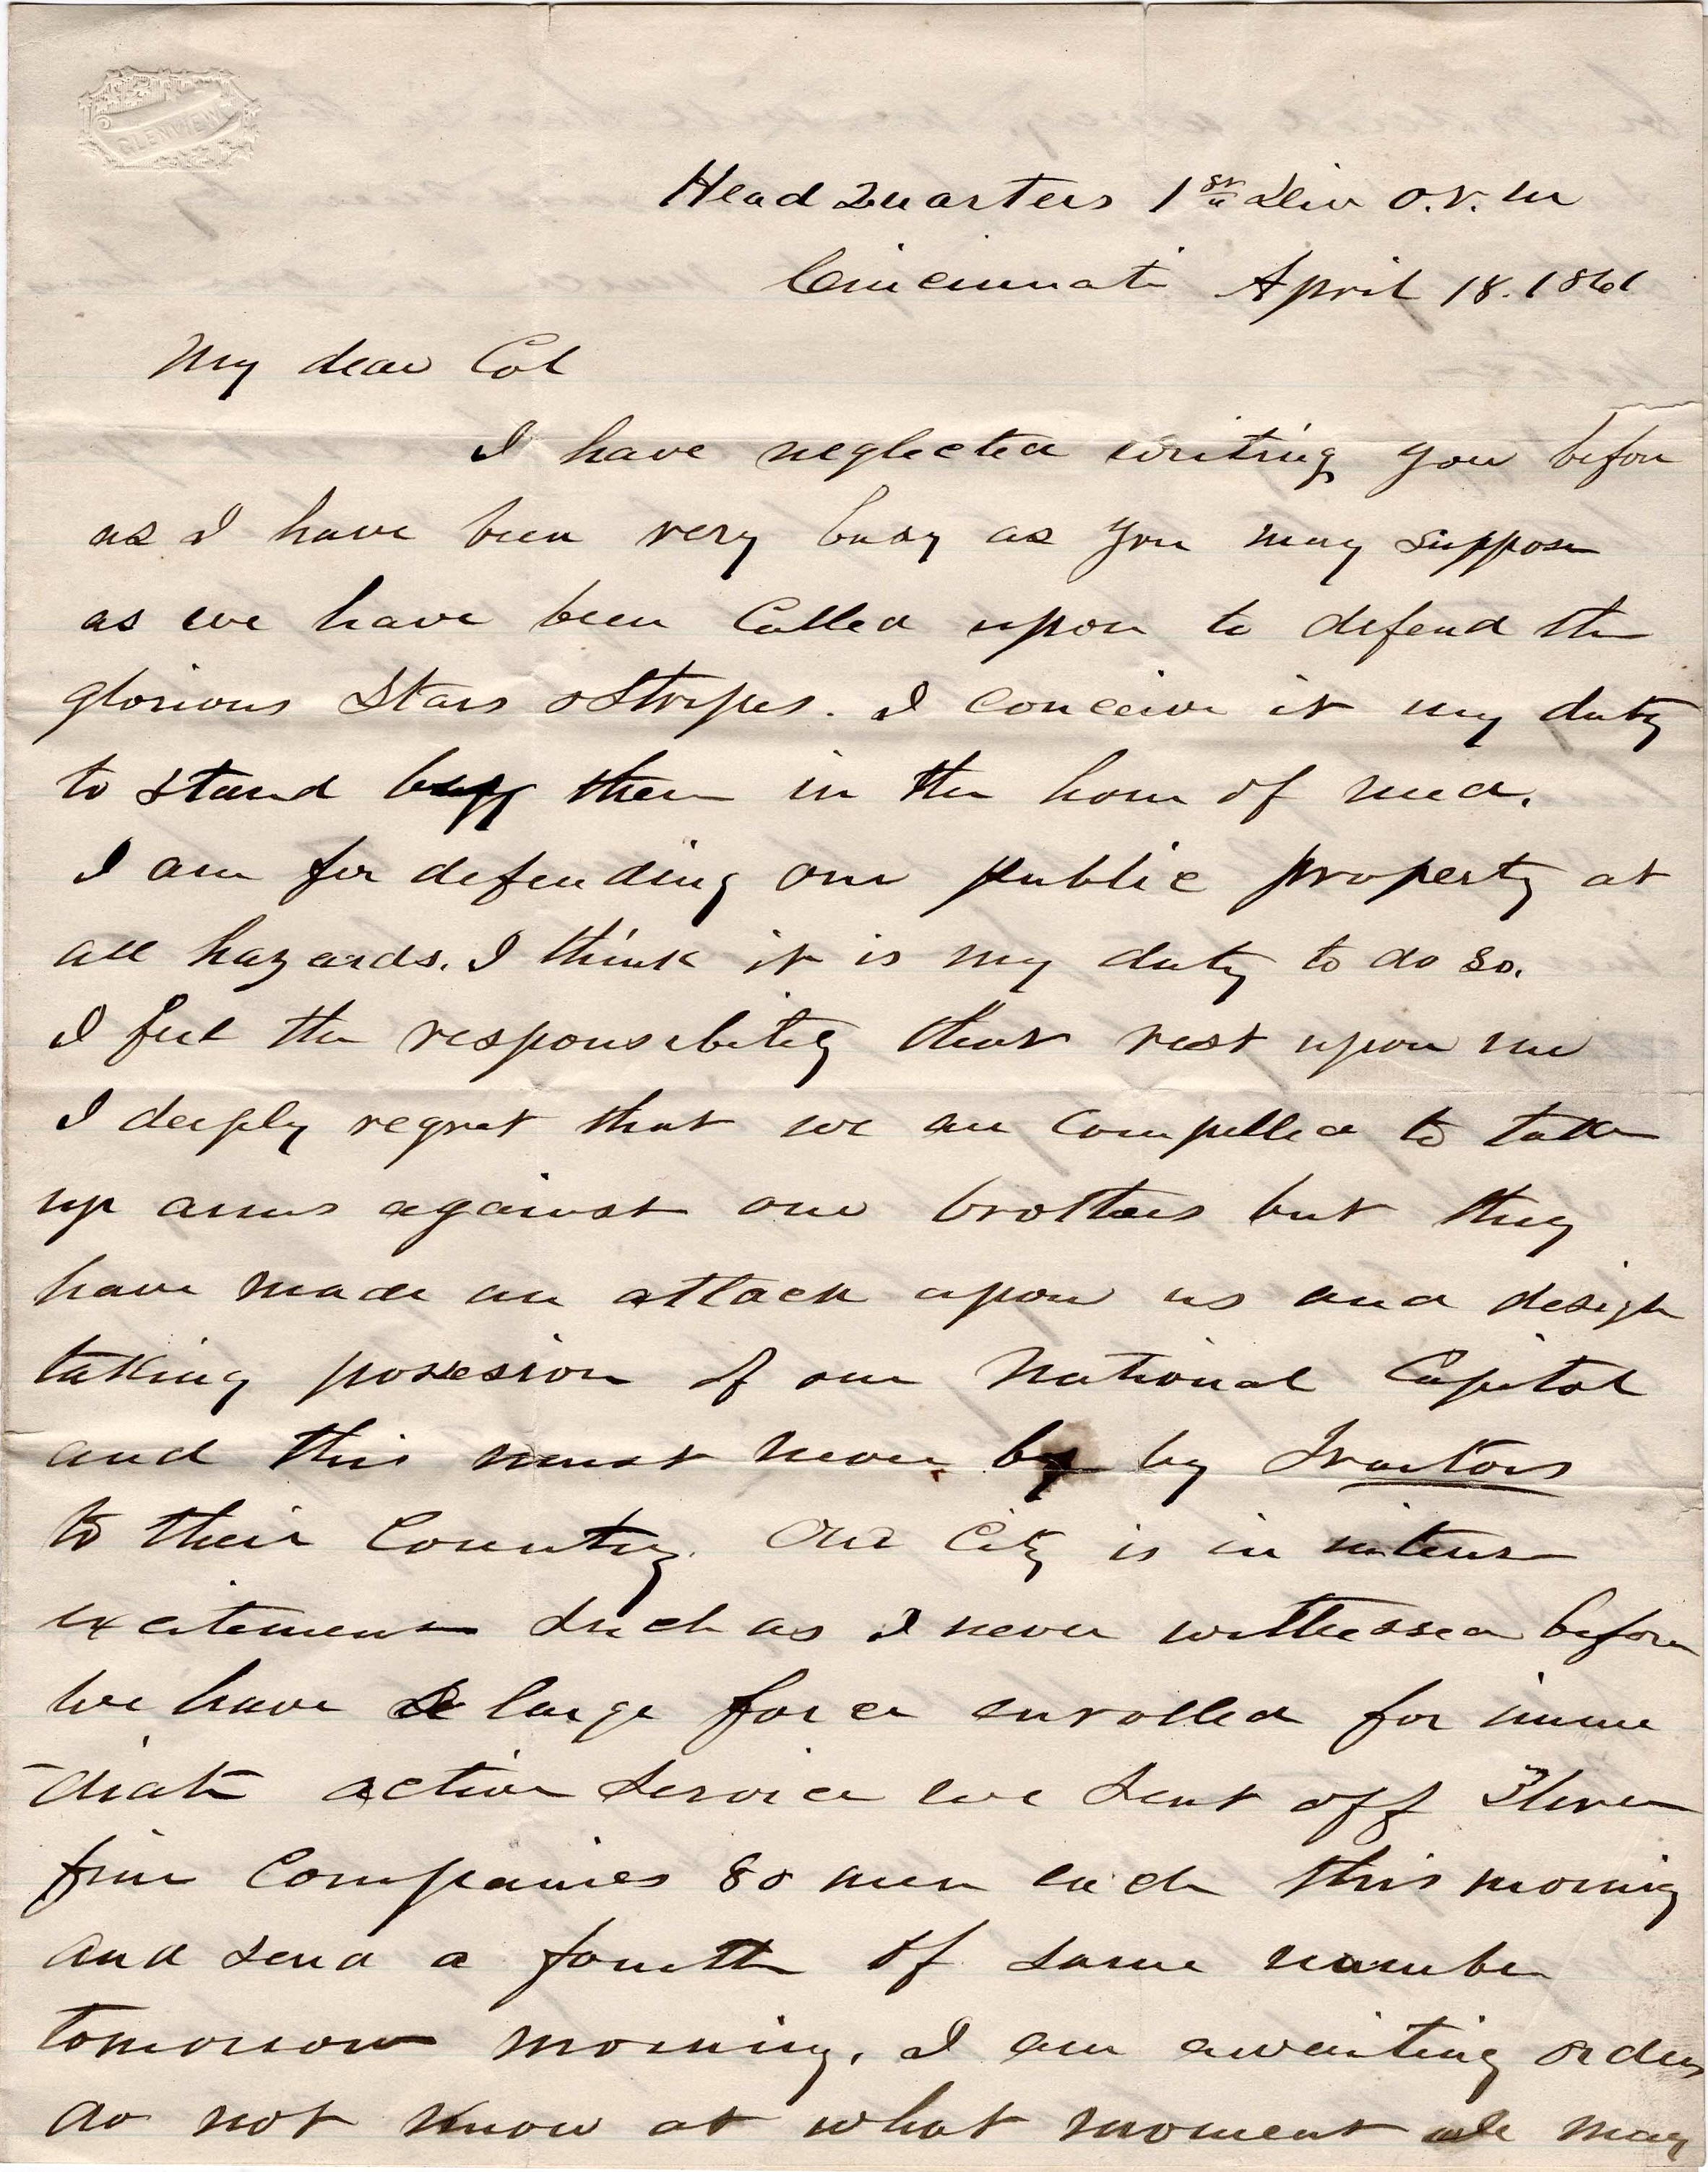 GLENVIEW
Head Quarters 1st Div O.V.M
Cincinnati April 18. 1861
My dear Col
I have neglected writing you before
as I have been very busy as you may suppose
as we have been Called upon to defend the
glorious Stars & Stripes. I conceive it my duty
to stand by them in the hour of need.
I am for defending our public property at
all hazards. I think it is my duty to do so.
I feel the responsibility that rest upon me
I deeply regret that we are compelled to take
up arms against our brothers but they
have made an attack upon us and design
taking possesion of our National Capitol
and this must never by Traitors
to their Country. Our City is in intense
excitement Such as I never witnessed before
We have a large force enrolled for imme
-diate active Service we Sent off Three
fine Companies 80 men each this morning
and Send a fourth of same number
tomorrow morning. I am awaiting orders
do not know at what moment we may